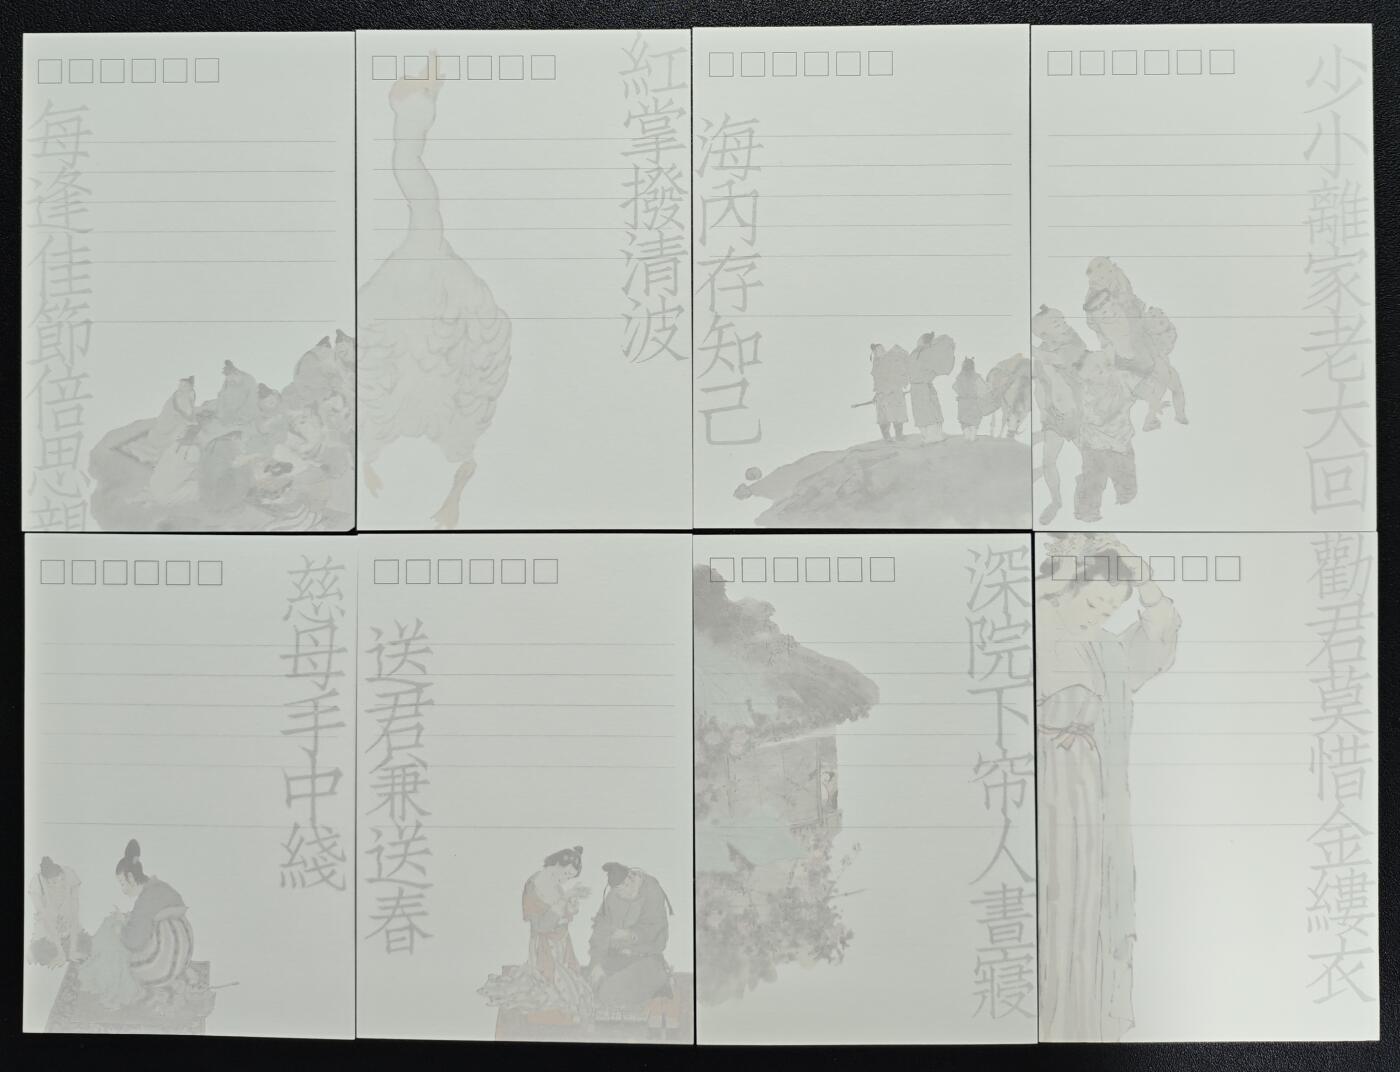 每逢佳節倍思親
紅掌撥清波
海內存知己
少小離家老大回
慈母手中綫
送君兼送春
深院下帘人晝寢
勸君莫惜金縷衣